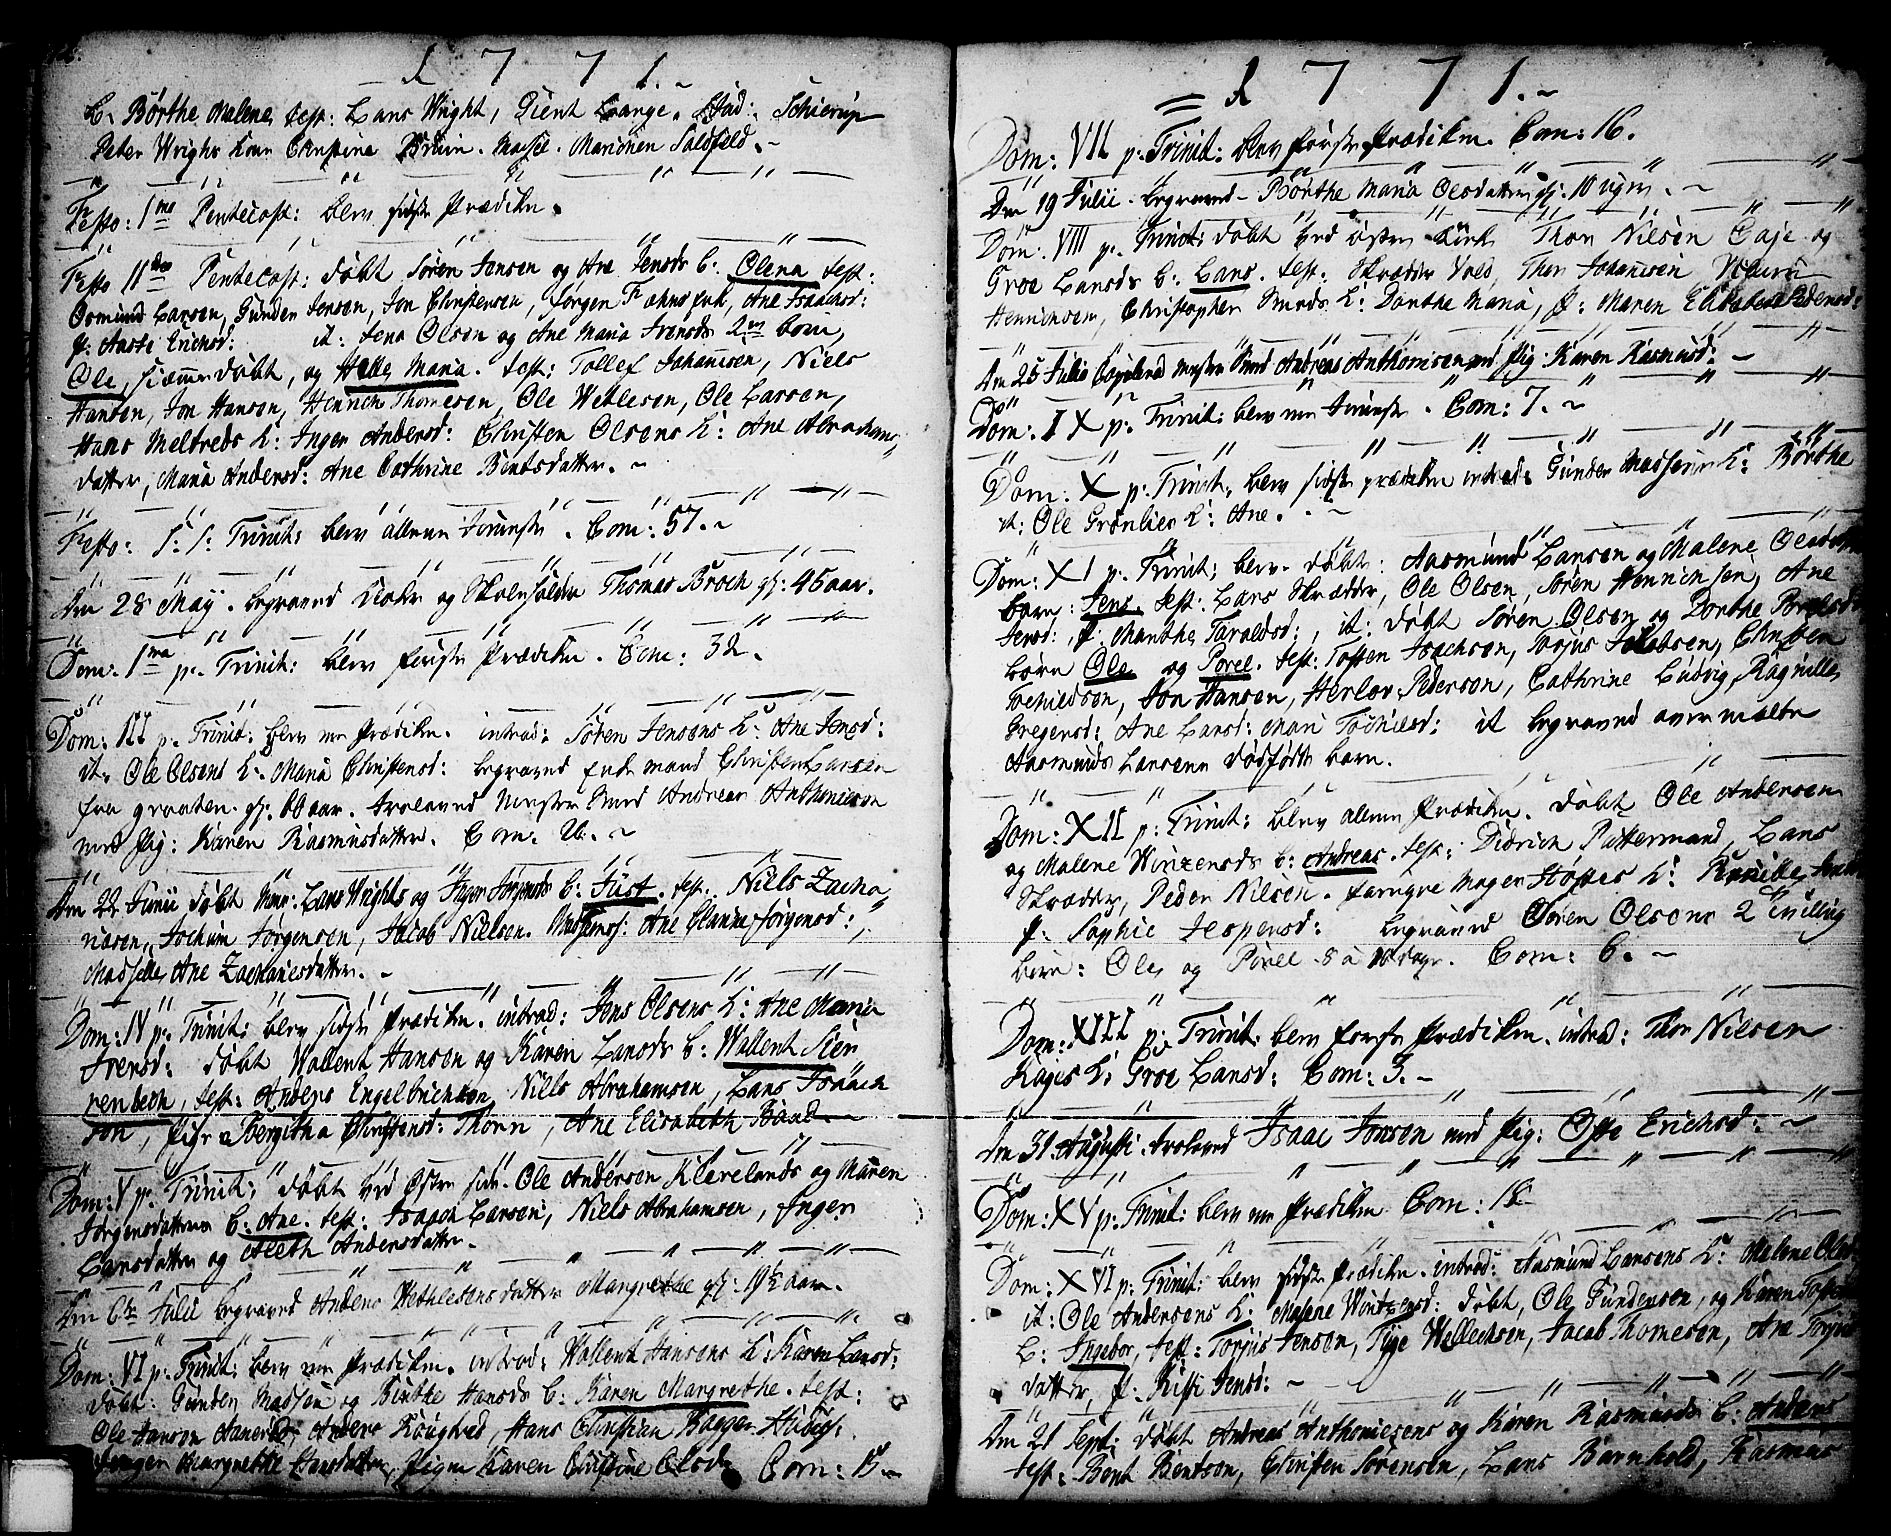 1771.
B. Börthe Malene test: Lars Wright, Lange. Stud: Schierup
Peter Wrighs Kone Christina Bruun. Madsel. Marichen Saldfeld.
Festo: 1me Pentecost: blev sidste Prædiken.
Festo IIden Pentecost: döbt Sören Jensen og Ane Jensds b: Olena test:
Osmund Larsen, Gunder Jensen, Jon Christensen, Jörgen, Ane Isaachsd:
p: Aaste Erichsd: it: Jens Olsen og Ane Maria Ivensds 2en börn,
Ole, hiemmedöbt, og Helle Maria. test: Tollef Johannesen, Niels
Hansen, Jon Hansen, Henrich Thomesen, Ole Wetlesen, Ole Larsen,
Hans Meltveds K: Inger Andersd: Christen Olsens K: Ane Abrahams
datter, Maria Andersd: Ane Cathrine Bentsdatter.
Festo: S: S: Trinit: blev alleene tieneste. Com: 57.
Den 28 May. begravend Klokker og Skoleholder Thomas Broch gl: 45 aar.
Dom: 1ma p. Trinit: blev förste Prædiken. Com: 32.
Dom: III p. Trinit: blev een Prædiken. introd: Sören Jensens K: Ane Jensd:
it. Ole Olsens K. Maria Christensd: begravend Enkemand Christen Larsen
fra graaten. gl. 66 aar. trolovend Mester Smed Andreas Anthonisen
med Pig: Karen Rasmusdatter. Com.
Den 22 Junii döbt Mons: Lars Wrights og Inger Jörgensds b: Just. test. Niels Zacha
riasen, Jochum Jörgensen, Jacob Nielsen. Ane Jörgensd:
Madselle Ane Zachariesdatter.
Dom: IV p: Trinit: blev sidste Prædiken. introd: Jens Olsens K: Ane Maria
Ivensd: döbt Wallent Hansen og Karen Larsds b: Wallent Sier
venbech, test: Anders Engelbrichsen, Niels Abrahamsen, Lars Isaach
sen, Pigr Bergitha Christensd: Thorn, Ane Elisabeth Baad
Dom: V p: Trinit: döbt ved Östre side. Ole Andersen Klevelands og Maren
Jörgensdatters b: Ane. test: Isaach Larsen, Niels Abrahamsen, Inger
Larsdatter og Aleth Andersdatter.
Den 6te Julii begravend Anders Wethlesens datter Margrethe gl: 19½ aar.
Dom: VI p: Trinit: blev een Prædiken. introd: Wallent Hansens K: Karen Larsd:
döbt: Gunder Madsen og Birthe Hansds b: Karen Margrethe. test:
Ole Hansen, Anders Röugtved, Hans Christian Bagger
Margrethe Hansdatter, Pigen Karen Christine Olsd. Com: 15.
1771.
Dom: VII p. Trinit: blev förste Prædiken. Com: 16.
Den 19 Julii. begravend Börthe Maria Olsdatter gl: 10 ugr.
Dom: VIII p. Trinit: döbt ved östre Kirk Thor Nilsen Caje og
Groe Larsds b: Lars. test: Skrædder Vold, Thor Johannsen,
Henrichsen, Christopher Smeds K: Dorthe Maria, p: Maren Elisabeth Pedersd:
Den 25 Julii Copulend Mester Smed Andreas Anthonisen med Pig: Karen Rasmusd:
Dom: IX p. Trinit: blev een tieneste. Com: 7.
Dom: X p. Trinit: blev sidste prædiken introd: Gunder Madsens K: Börthe
it: Ole Grönlies K: Ane.
Dom: XI p. Trinit: blev döbt: Aasmund Larsen og Malene Olsdatters
barn: Jens. test: Lars Skrædder, Ole Olsen, Sören Henrichsen, Ane
Jensd:, p. Marthe Taraldsd:, it: döbt Sören Olsen og Dorthe Porelsds
börn Ole og Porel. test: Tosten Isachsen, Torjus Jacobsen, Christen
Jon Hansen, Herlov Pedersen, Cathrine Ludvig, Ragnille
Gregersd: Ane Larsd: Mari it begravend
Aasmunds Larsens dödfödte barn.
Dom: XII p: Trinit: blev alleene Prædiken. döbt Ole Andersen
og Malene Wintzensds b: Andreas. test: Didrich Pattermand, Lars
Skrædder, Peder Nilsen. K:
p: Sophie Jespersd: begravend Sören Olsens 2 tvilling
börn: Ole og Porel 8 a 10 dagr. Com: 6.
Dom: XIII p: Trinit: blev förste Prædiken. introd: Thor Nilsen
Kajes K: Groe Larsd: Com: 3.
Den 31 Augusti. trolovend Isaac Jonsen med Pig: Erichsd:
Dom: XV p: Trinit: blev een Prædiken Com: 18
Dom: XVI p: Trinit: blev sidste Prædiken. introd: Aasmund Larsens K: Malene Olsd
it: Ole Andersens K: Malene Wintzensd: döbt, Ole Gundersen, og Karen
b: Ingebor, test: Torjus Jensen, Tyge Wellechsen, Jacob Thomesen, Ane
datter, p: Jensd:
Den 21 Sept: döbt Andreas Anthonisens og Karen Rasmusds b: Anders
test: Bent Bentsen, Christen Sörensen, Lars Barnhold, Rasmus